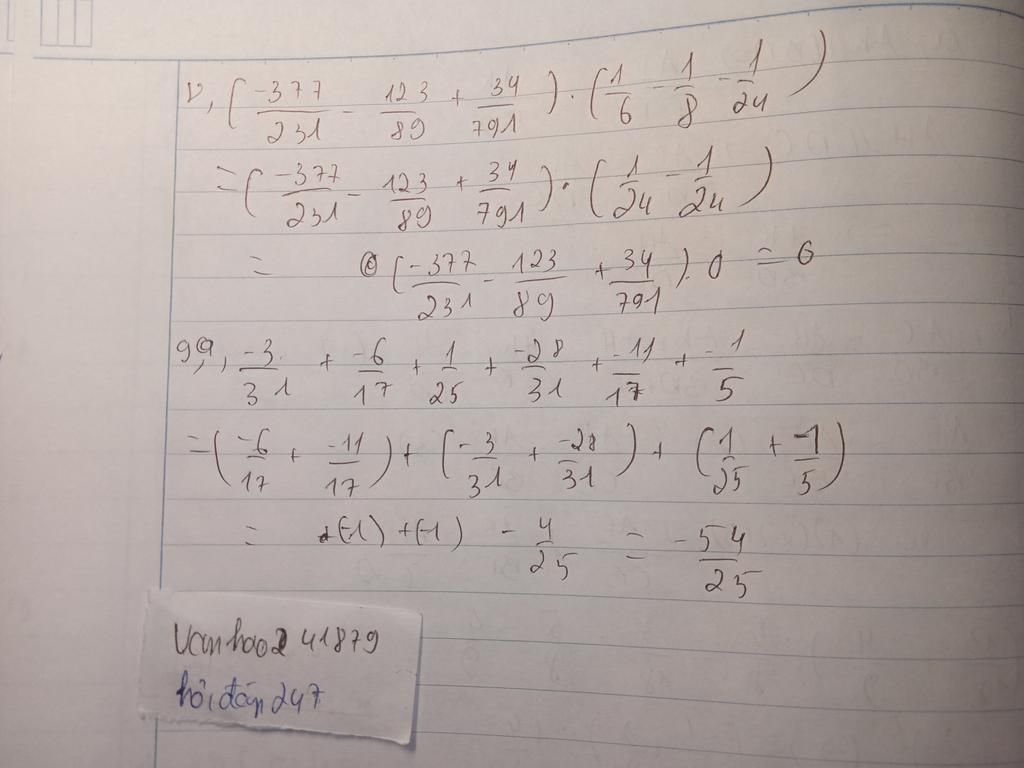 v, (-377/231 - 123/89 + 34/791) . (1/6 - 1/8 - 1/24)
= (-377/231 - 123/89 + 34/791) . (1/24 - 1/24)
= (-377/231 - 123/89 + 34/791) . 0 = 0
99, -3/31 + -6/17 + 1/25 + -28/31 + -11/17 + -1/5
= (-6/17 + -11/17) + (-3/31 + -28/31) + (1/25 + -1/5)
= (-1) + (-1) - 4/25 = -54/25
41879
hỏi đáp 247